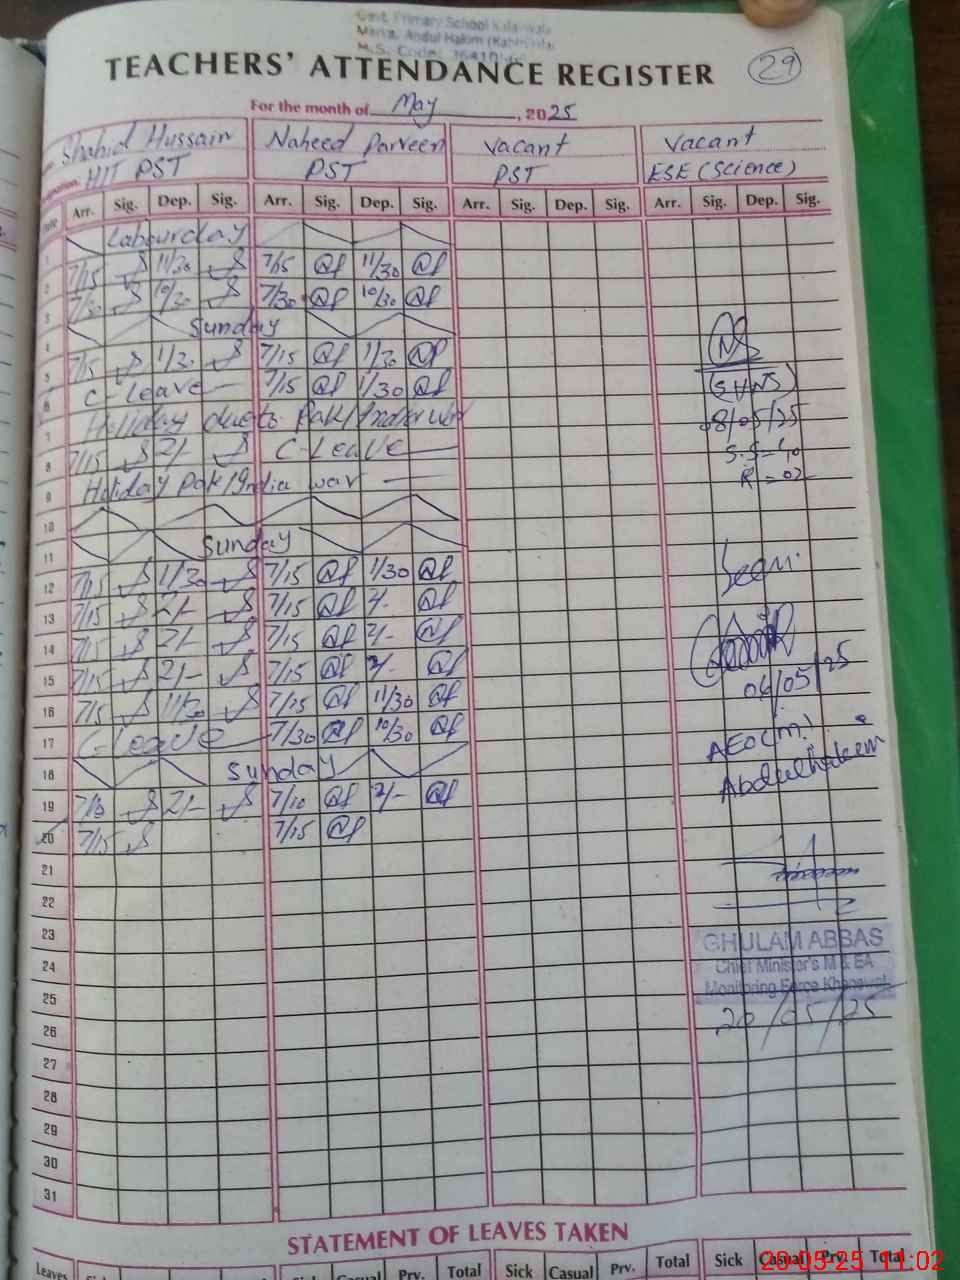 Govt. Primary School
Marza, Abdul Hakim
TEACHERS' ATTENDANCE REGISTER 29
For the month of May, 2025
Shahid Hussain Naheed Parveen Vacant Vacant
HIT PST PST PST ESE (Science)
Arr. Sig. Dep. Sig. Arr. Sig. Dep. Sig. Arr. Sig. Dep. Sig. Arr. Sig. Dep. Sig.
1 Labour day
2 7/15 11/30 7/15 11/30
3 7/30 10/30 7/30 10/30
4 Sunday
5 7/15 1/30 7/15 1/30
6 C-leave 7/15 1/30
7 Holiday due to Pak/India war
8 7/15 2/- C-Leave
9 Holiday Pak/India war
10
11 Sunday
12 7/15 1/30 7/15 1/30
13 7/15 2/- 7/15 2/-
14 7/15 2/- 7/15 2/-
15 7/15 2/- 7/15 2/-
16 7/15 11/30 7/15 11/30
17 C-Leave 7/30 10/30
18 Sunday
19 2/- 7/10 2/-
20 7/15 7/15
21
22
23
24
25
26
27
28
29
30
31
08/05/25
R = 02
Seen
06/05/25
AEO (M)
Abdulhakeem
GHULAM ABBAS
Chief Minister's M & EA
Monitoring Force Khanewal
20/05/25
STATEMENT OF LEAVES TAKEN
Leaves Casual Prv. Total Sick Casual Prv. Total Sick Casual Prv. Total
20-05-25 11:02